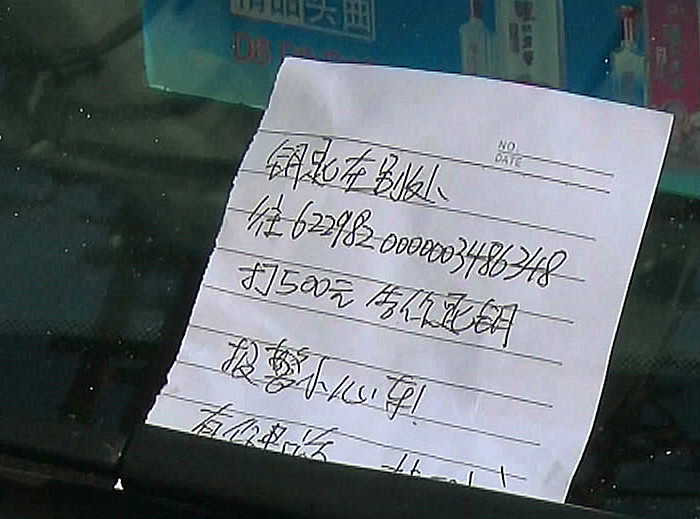 精品头曲
NO.
DATE
钥匙在别处
往6229820000003486348
打500元 告你匙钥
报警小心车!
有你电话